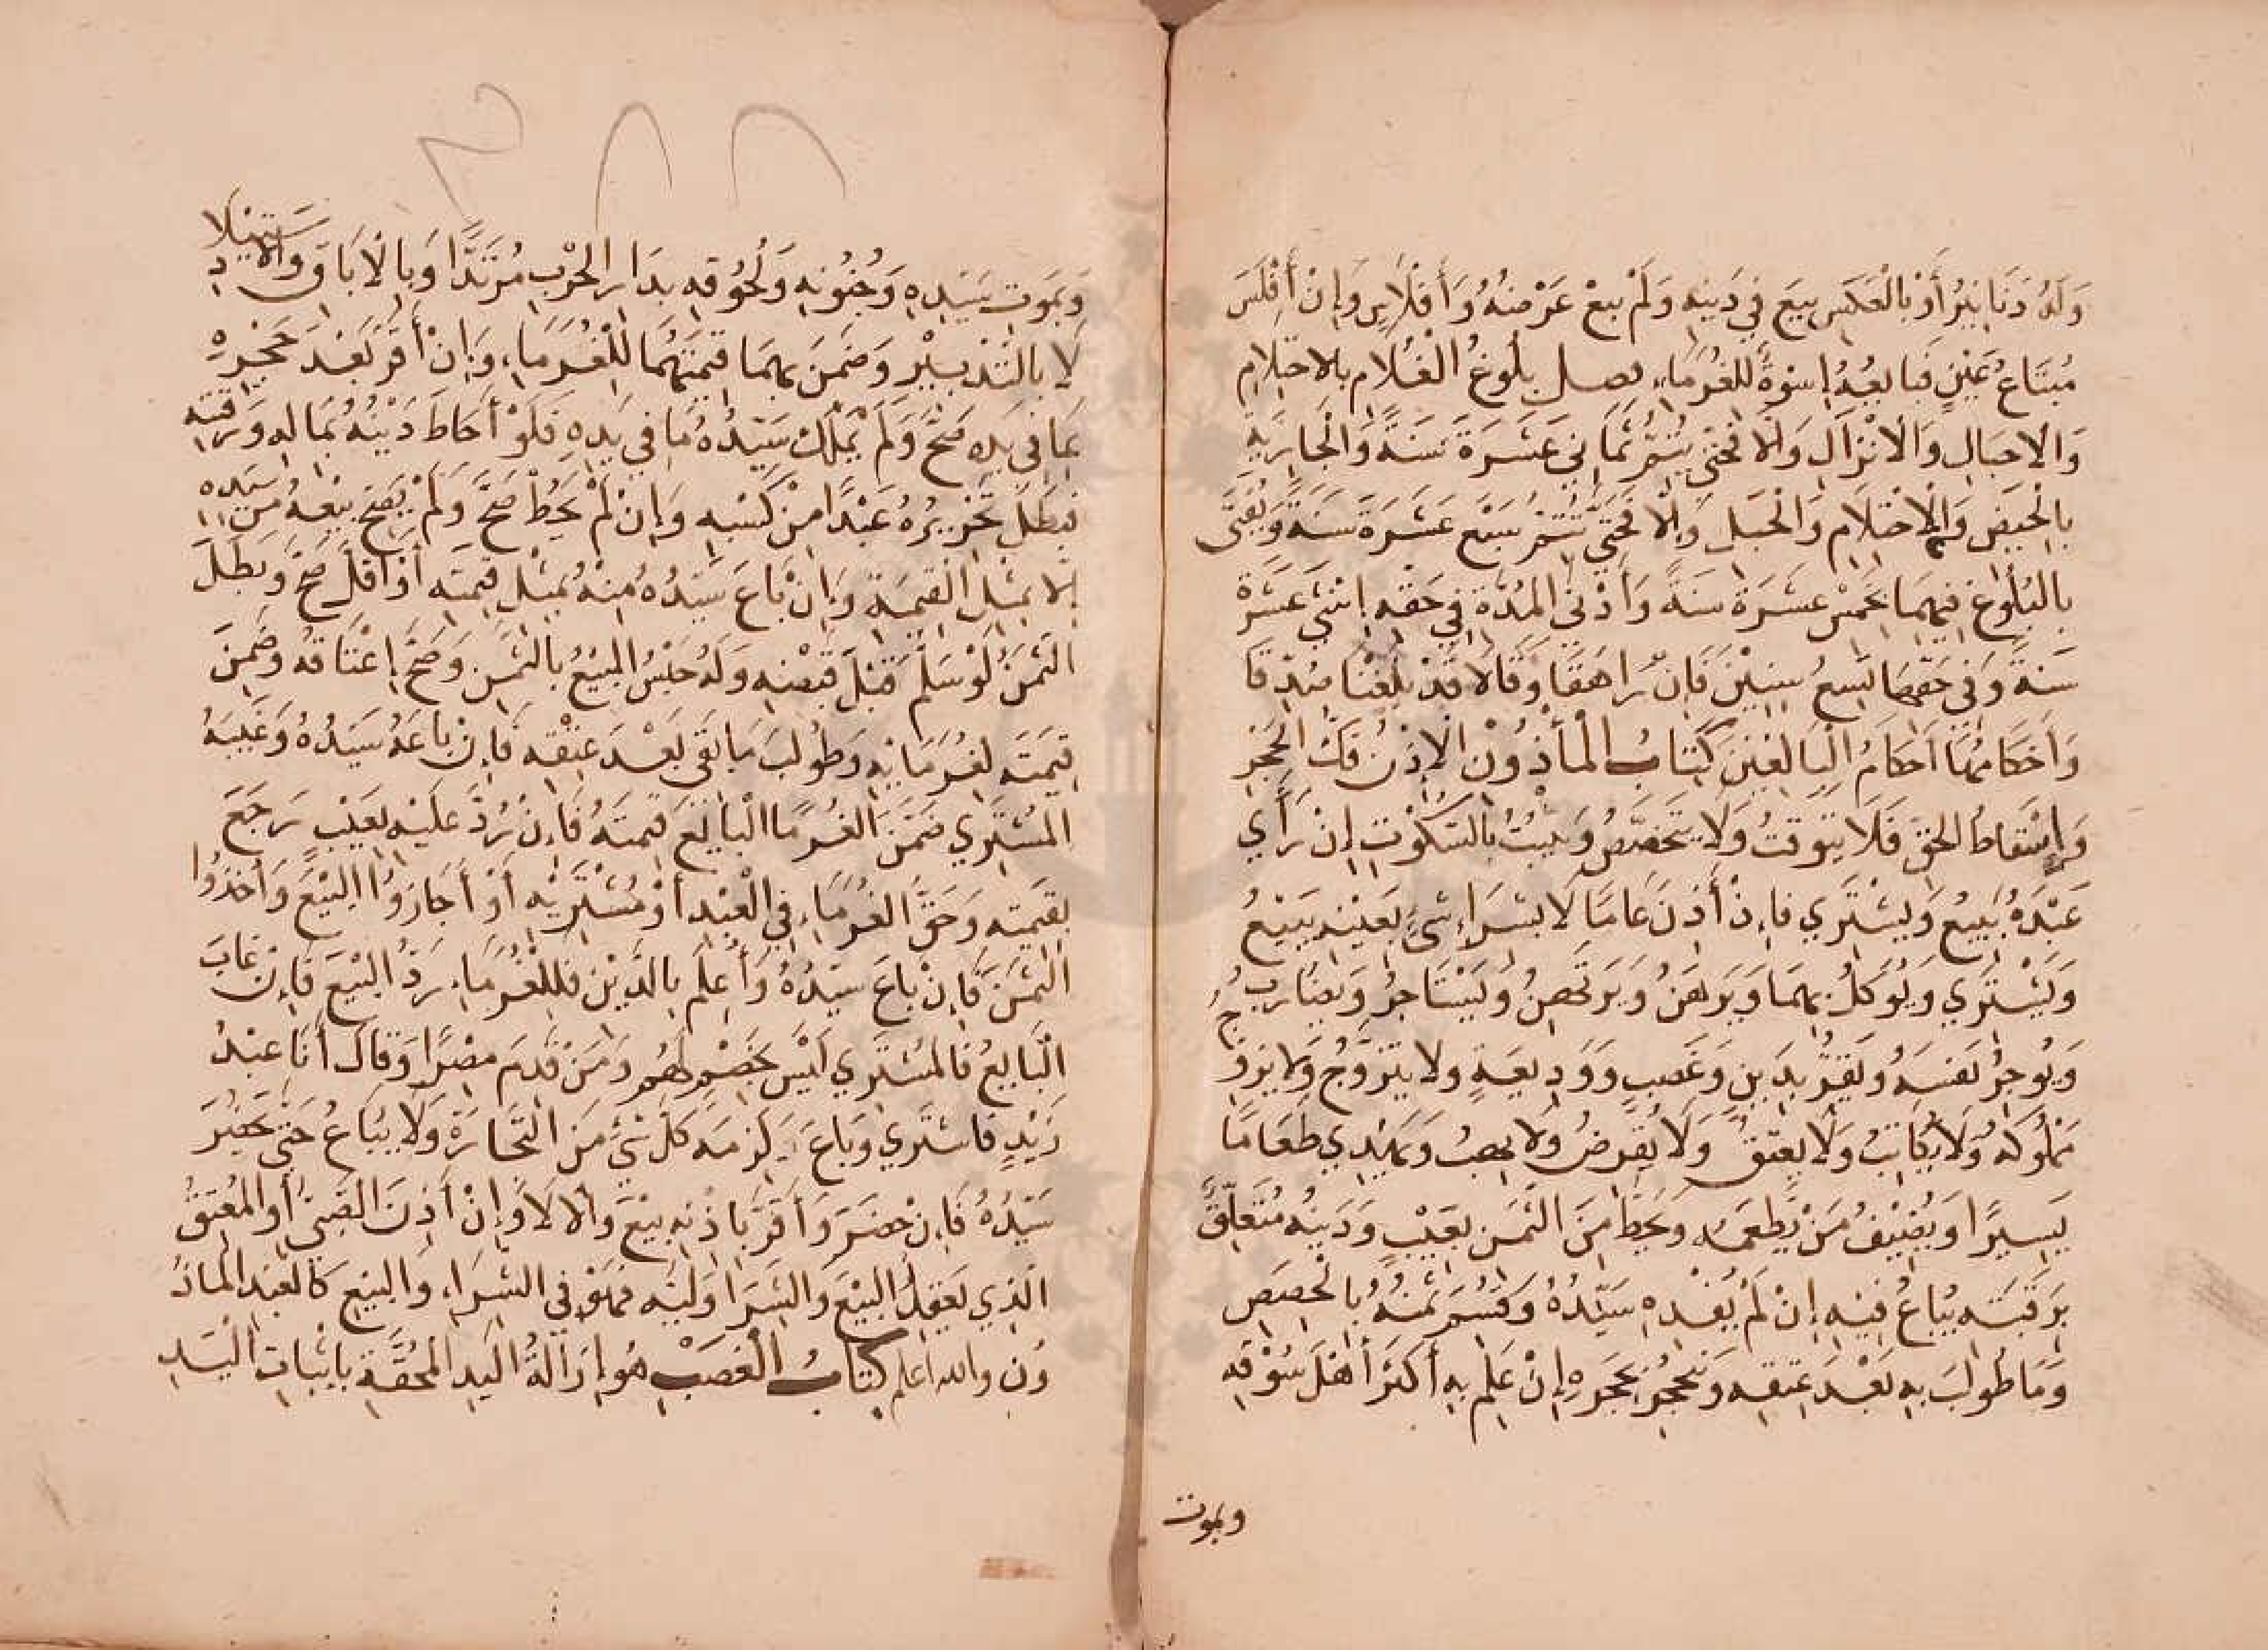 وَلَهُ دَنَانِيرُ أَوْ بِالْعَكَسِ بِيعَ فِي دَيْنِهِ وَلَمْ يبعْ عَرْضُهُ وَأَفْلَاسٍ وَإِنْ أَفْلَسَ
مُبْتَاعُ عَيْنٍ فَبايعُهُ إِسْوَةٌ للغُرَمَاءِ فصل بلُوغُ الْغُلَامِ بالاحتِلَامِ
وَالاحبَالِ وَالانْزَالِ وَالَّا فَحَتَّى يُتِمَّ ثَمَانِي عَشَرَةَ سَنَةً وَالْجَارِيَةِ
بِالْحَيضِ وَالْاحتِلَامِ وَالْحَبَلِ وَإلَّا فَحَتَّى تُتِمَّ سَبْعَ عَشَرَةَ سَنَةً وَيُفْتَى
بِالبُلُوغِ فِيهِمَا بِخَمْسَ عَشَرَةَ سَنَةً وَأَدْنَى المُدَّةِ فِي حَقِّهِ اثْنَتَي عَشَرَةَ
سَنَةً وَفِي حَقِّهَا تِسْعُ سِنِيْنَ فَإِنْ رَاهَقَا وَقَالَا قَدْ بَلَغْنَا صُدِّقَا
وَأَحْكَامُهُمَا أَحْكَامُ الْبَالِغِينَ كِتَابُ المَأْذُوْنِ الْإِذْنُ فَكُّ الْحَجْرِ
وَإِسْقَاطُ الحَقِّ فَلَا يَتَوَقَّتُ وَلَا يَتَخَصَّصُ وَيَثْبُتُ بِالسُّكُوْتِ إِنْ رَأَي
عَبْدَهُ يَبِيعُ وَيَشْتَرِي فإِنْ أَذِنَ عَامًّا لَا بِشَرَاءِ شَيْءٍ بِعَيْنِهِ يَبِيْعُ
وَيَشْتَرِي وَيُوَكِّلُ بِهِمَا وَيَرْهَنُ وَيَرْتَهِنُ وَيَسْتَاجِرُ وَيُضَارِبُ
وَيُوجِرُ نَفْسَهُ وَيُقِرُّ بِدَيْنٍ وَغَصبٍ وَوَدِيعَةٍ ولا يَتَزَوَّجُ وَلَا يُزَوِّجُ
مَمْلُوكَهُ وَلَا يُكَاتِبُ وَلَا يُعْتِقُ وَلَا يُقْرِضُ وَلا يهِبُ وَيَهْدِي طَعَامًا
يَسِيرًا وَيُضَيِّفُ مَنْ يُطْعِمُهُ وَيَحُطُّ مِنَ الثَّمَنِ بِعَيْبٍ وَدَيْنُهُ مُتَعَلِّقٌ
بِرَقَبَتِهِ يُبَاعُ فِيْهِ إِنْ لَمْ يُفْدِهِ سَيِّدُهُ وَقُسِّمَ ثَمَنُهُ بِالْحِصَصِ
وَمَا طُولِبَ بِهِ بَعْدَ عِتقِهِ وَيَنْحَجِرُ بِحَجْرِهِ إِنْ عَلِمَ بِهِ أَكْثَرُ أَهْلِ سُوْقِهِ
وبموت
وَبِمَوتِ سَيِّدِهِ وَجُنُوْنِهِ وَلُحُوقِهِ بِدَارِ الحَرْبِ مُرْتَدًّا وَبِالْابَاقِ وَالاسْتِيْلَادِ
لَا بالتَّدْبِيْرِ وَضَمِنَ بِهِمَا قِيْمَتَهُمَا لِلْغُرَمَاءِ وَإِنْ أَقَرَّ بَعْدَ حَجْرِهِ
بِمَا فِي يَدِهِ صَحَّ وَلَمْ يَمْلِكْ سَيِّدُهُ مَا فِي يَدِهِ فَلَوْ أَحَاطَ دَيْنُهُ بِمَالِهِ وَرَقَبَتِهِ
فَبَطَلَ تَحْرِيرُهُ عَبْدًا مِنْ كَسْبِهِ وَإِنْ لَمْ يُحِطْ صَحَّ وَلَمْ يَصِحَّ بَيْعُهُ مِنْ سَيِّدِهِ
إِلَّا بِمِثْلِ القِيمَةِ وَإِنْ بَاعَ سَيِّدُهُ مِنْهُ بِمِثْلِ قِيمَتِهِ أَوْ أَقَلَّ صَحَّ وَبَطَلَ
الثَّمَنُ لَوْ سَلَّمَ قَبْلَ قَبْضِهِ وَلَهُ حَبْسُ المَبِيْعِ بالثَّمَنِ وَصَحَّ إِعْتَاقُهُ وَضَمِنَ
قِيمَتَهُ لِغُرَمَائِهِ وَطُولِبَ مَا بَقَى بَعْدَ عِتْقِهِ فَإِنْ بَاعَهُ سَيِّدُهُ وَغَيَّبَهُ
المُشْتَرِي ضَمَّنَ الغُرَمَا الْبَايِعَ قِيمَتَهُ فَإِنْ رُدَّ عَلَيْهِ بِعَيْبٍ رَجَعَ
بِقِيمَتِهِ وَحَقُّ الغُرَمَاءِ فِي الْعَبْدِ أَوْ مُشْتَرِيْهِ أَوْ أَجَازَوُا البَيْعَ وَأَخَذُوا
الثَّمَنَ فَإِنْ بَاعَ سَيِّدُهُ وَأَعْلَمَ بِالدَّيْنِ فَلِلْغُرَمَاءِ رَدُّ البَيْعَ فَإِنْ غَابَ
الْبَايِعُ فَالمُشْتَرِي لَيْسَ بِخَصْمٍ لَهُمْ وَمَنْ قَدِمَ مِصْرًا وَقَالَ أَنَا عَبْدُ
زَيْدٍ فَاشْتَرِي وَبَاعَ لَزِمَهُ كُلُّ شَيْءٍ مِنَ التِّجَارَةِ وَلَا يُبَاعُ حَتَّى يَحْضُرَ
سَيِّدُهُ فَإِنْ حَضَرَ وَأَقَرَّ بِإِذْنِهِ بِيْعَ وَالا لَا وَإِنْ أَذِنَ الصَّبِيَّ أَوِ المُعْتَقَ
الَّذِي يَعْقِلُ البَيْعَ وَالشِّرَا وَلِيُّه فَهُوَ فِي الشِّرَاءِ وَالبَيْعِ كَالْعَبْدِ المَاذُ
وْنِ والله اعلم كِتَابُ الْغَصبِ هُوَ إِزَالَةُ اليَدِ المُحِقَّةِ بِإِثْبَاتِ اليَدِ